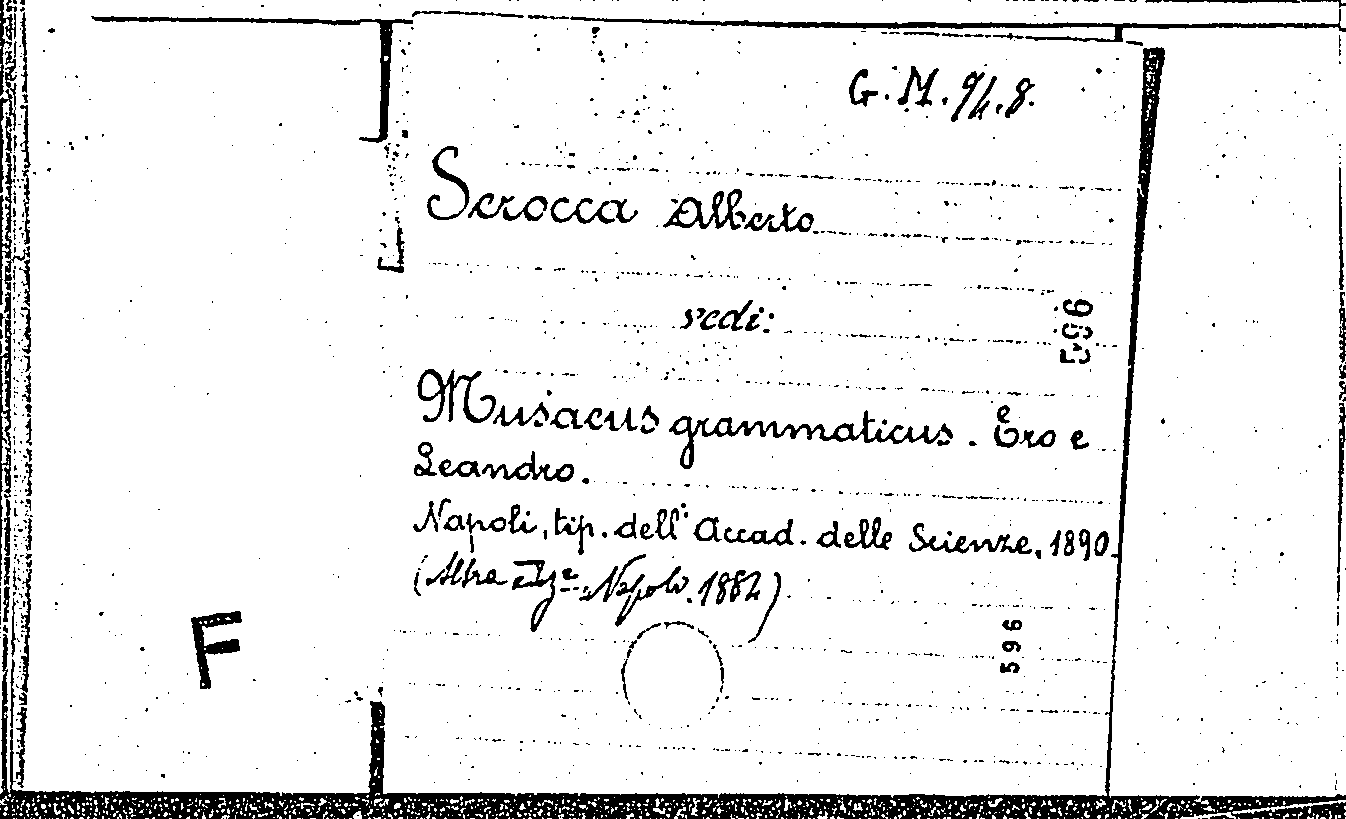 G. M. 9/4.8.
Scrocca Alberto
vedi:
596
Musaeus grammaticus. Ero e
Leandro.
Napoli, tip. dell' Accad. delle Scienze, 1890.
(Altra Ediz.e Napoli. 1882)
596
F